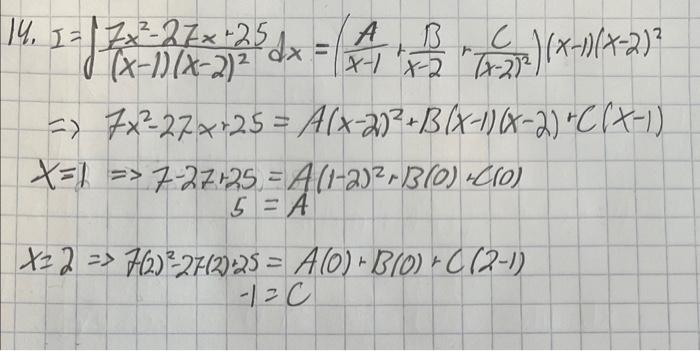 14. I = ∫ 7x²-27x+25 / (x-1)(x-2)² dx = (A/x-1 + B/x-2 + C/(x-2)²)(x-1)(x-2)²
=> 7x²-27x+25 = A(x-2)²+B(x-1)(x-2)+C(x-1)
x=1 => 7-27+25 = A(1-2)²+B(0)+C(0)
5 = A
x=2 => 7(2)²-27(2)+25 = A(0)+B(0)+C(2-1)
-1 = C